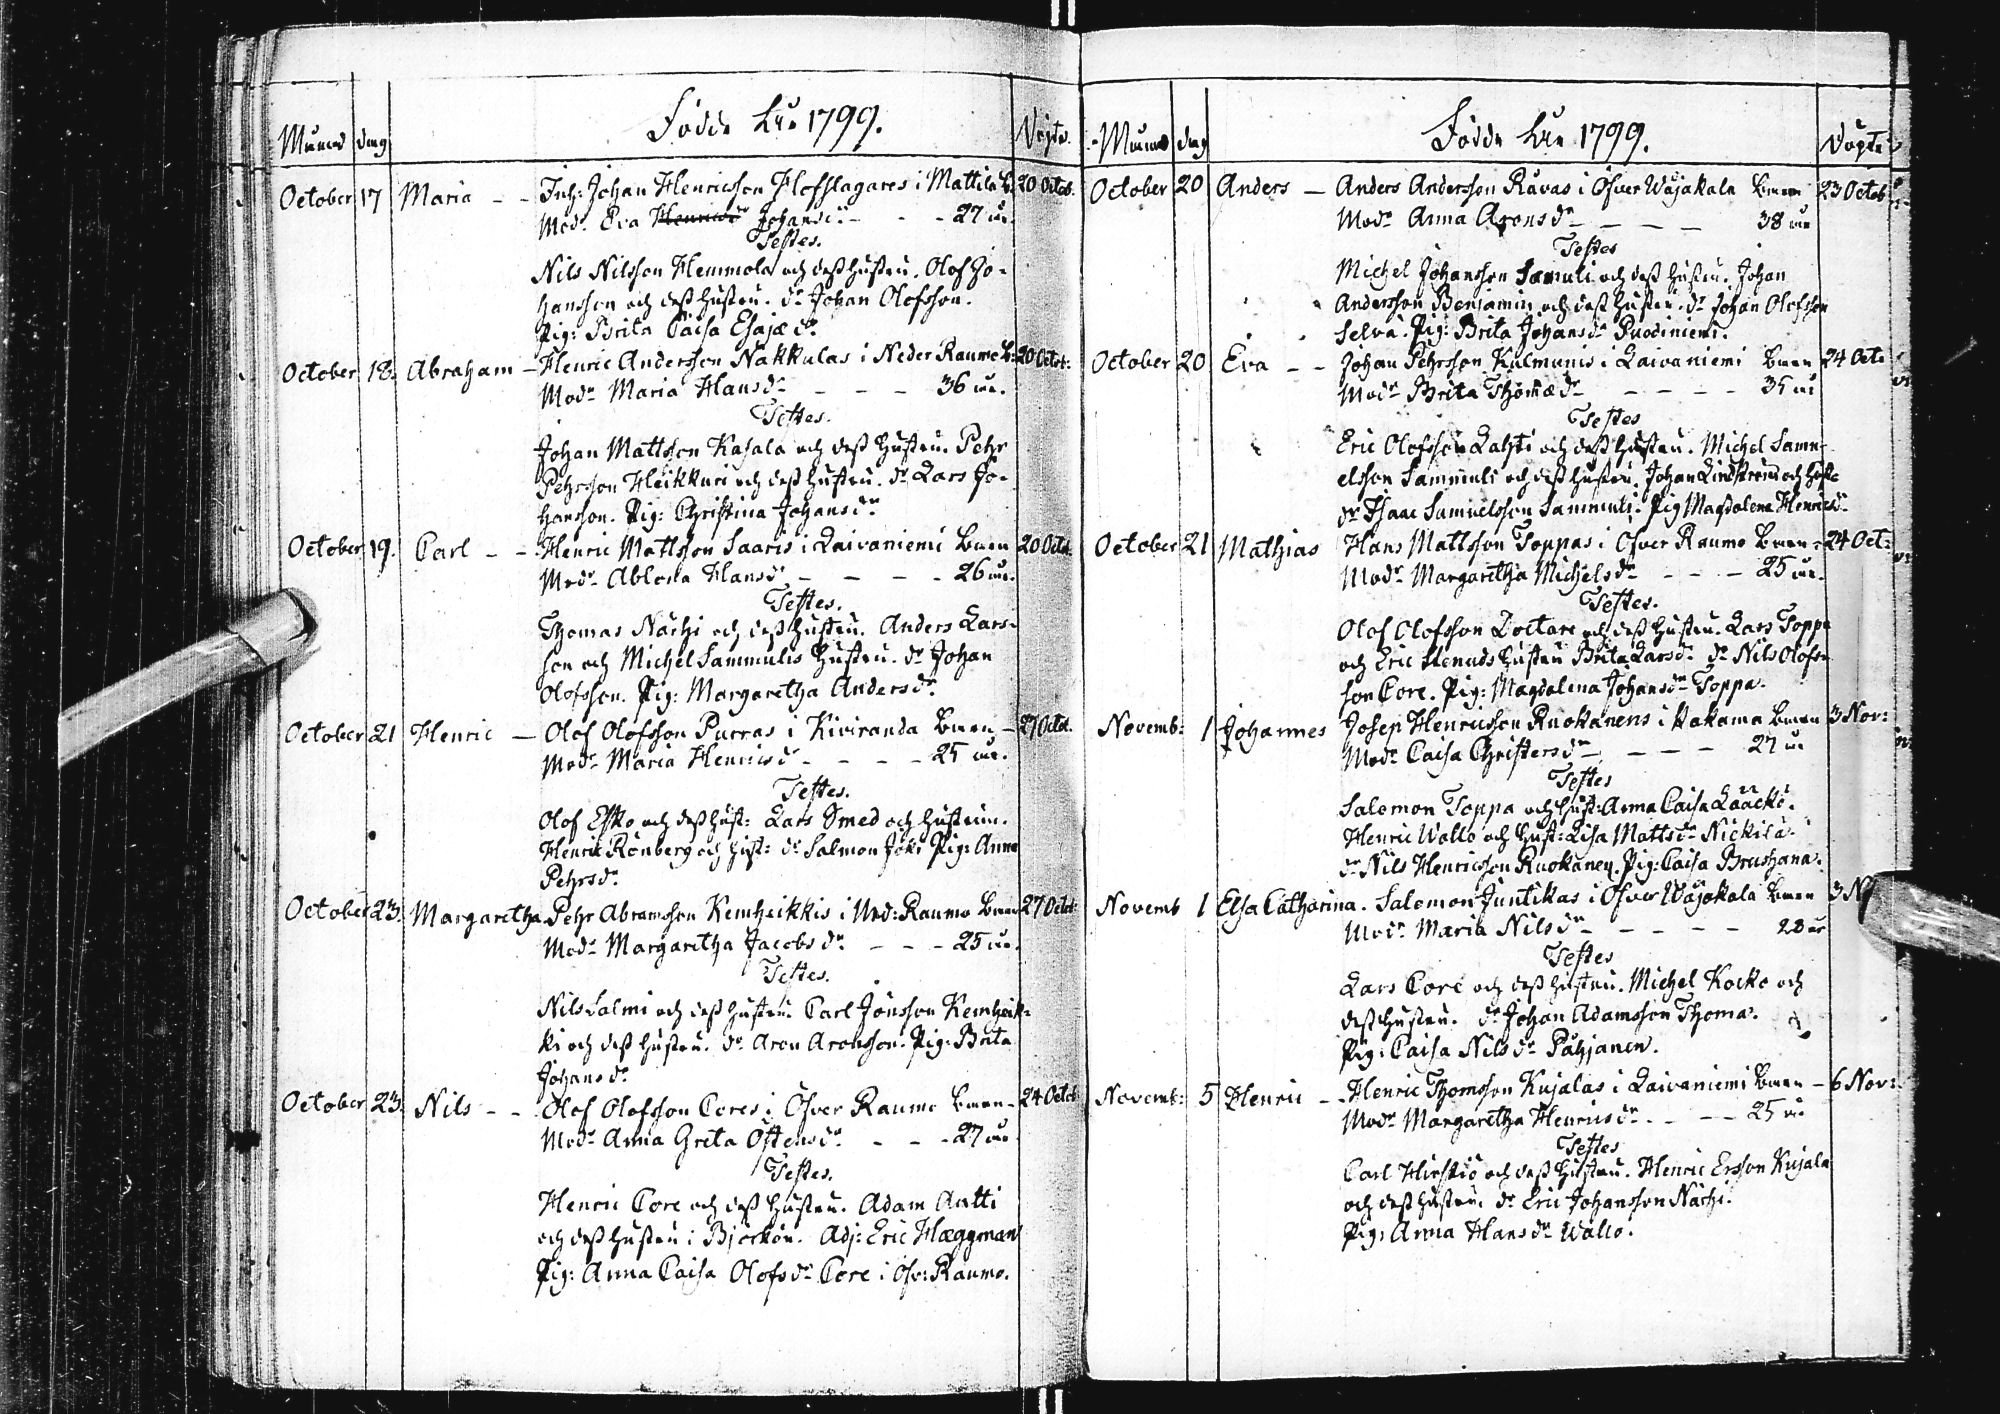 Födde åhr 1799.
Månad dag Döpte.
October 17 Maria - - Inh: Johan Henricsson Hofslagares i Mattila B: 20 Octob.
Modr Eva Henricsdr Johansdr - - - 27 år.
Testes.
Nils Nilsson Hemmola och dess hustru. Olof Jo-
hansson och dess hustru. dr Johan Olofsson.
Pig: Brita Caisa Esajædr
October 18. Abraham - Henric Andersson Nakkulas i Neder Raumo B: 20 Octob:
Modr Maria Hansdr - - - 36 år.
Testes.
Johan Mattsson Kasala och dess hustru. Pehr
Pehrsson Heikkuri och dess hustru. dr Lars Jo-
hansson. Pig: Christina Johansdr
October 19. Carl - - Henric Mattsson Saaris i Laivaniemi Barn 20 Octob.
Modr Ablona Hansdr - - - - 26 år.
Testes.
Thomas Nächi och dess hustru. Anders Lars-
son och Michel Sammulis hustru. dr Johan
Olofsson. Pig: Margaretha Andersdr
October 21 Henric - Olof Olofsson Purras i Kiviranda Barn - 27 Octob.
Modr Maria Henricsdr - - - - 25 år.
Testes.
Olof Esko och dess hust: Lars Smed och hustrun.
Henric Rönberg och hust: dr Salmon Joki Pig: Anna
Pehrsdr
October 23. Margaretha Pehr Abramsson Kemheikkis i Ned: Raumo Barn 27 Octob:
Modr Margaretha Jacobsdr - - - 25 år.
Testes.
Nils Salmi och dess hustru. Carl Jönsson Kemheik-
ki och dess hustru. dr Aron Aronsson. Pig: Brita
Johansdr
October 23. Nils - - Olof Olofsson Cores i Öfver Raumo Barn - 24 Octob
Modr Anna Greta Östensdr - - - 27 år
Testes.
Henric Core och dess hustru. Adam Antti
och dess hustru i Björkön. Adj: Eric Hæggman
Pig: Anna Caisa Olofsdr Core i Öfv: Raumo.
Födde åhr 1799.
Månad dag Döpte
October 20 Anders - Anders Andersson Råvas i Öfver Wojakala Barn 23 Octob
Modr Anna Aronsdr - - - - 38 år
Testes
Michel Johansson Samuli och dess hustru. Johan
Andersson Benjamin och dess hustru. dr Johan Olofsson
Selvä. Pig: Brita Johansdr Puodiniemi.
October 20 Eva - - Johan Pehrsson Kulmunis i Laivaniemi Barn 24 Octo
Modr Brita Thomædr - - - - 35 år
Testes
Eric Olofsson Lahti och dess hustru. Michel Samu-
elsson Sammuli och dess hustru. Johan Lindström och hust:
dr Isaac Samuelsson Sammuli. Pig Magdalena Henricsdr
October 21 Mathias Hans Mattsson Toppas i Öfver Raumo Barn - 24 Oct:
Modr Margaretha Michelsdr - - - 25 år.
Testes.
Olof Olofsson Doctare och dess hustru. Lars Toppa
och Eric Stenuds hustru Brita Larsdr dr Nils Olofs-
son Core. Pig: Magdalena Johansdr Toppa.
Novemb: 1 Johannes Josep Henricsson Ruokanens i Kakama Barn 3 Nov:
Modr Caisa Christersdr - - - - 27 år
Testes
Salomon Toppa och hust: Anna Caisa Lääckö.
Henric Wallo och hust: Lisa Mattsdr Nickilä.
dr Nils Henricsson Ruokanen. Pig: Caisa
Novemb 1 Elsa Catharina. Salomon Juntikas i Öfver Wojakala Barn 3 N
Modr Maria Nilsdr - - - - - 28 år
Testes
Lars Core och dess hustru. Michel Kocko och
dess hustru. dr Johan Adamsson Thoma.
Pig: Caisa Nilsdr Påhjanen.
Novemb: 5 Henric - Henric Thomsson Kujalas i Laivaniemi Barn - 6 Nov:
Modr Margaretha Henricsdr - - - 25 år
Testes
Carl Hirstiö och dess hustru. Henric Ersson Kujala
och dess hustru. dr Eric Johansson Nächi.
Pig: Anna Hansdr Wallo.